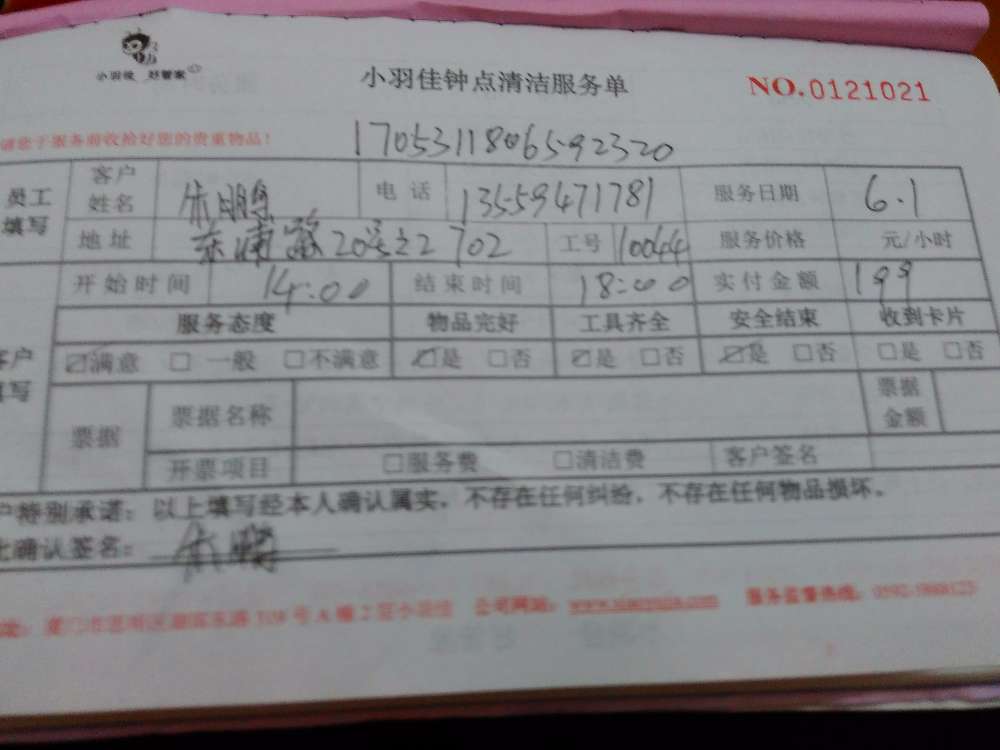 小羽佳 好管家
小羽佳钟点清洁服务单 NO.0121021
请您于服务前收拾好您的贵重物品!
1705311806592320
员工填写 客户姓名 朱鹏 电话 13559471781 服务日期 6.1
地址 东浦路20号之2 702 工号 10044 服务价格 元/小时
开始时间 14:00 结束时间 18:00 实付金额 199
服务态度 物品完好 工具齐全 安全结束 收到卡片
客户填写 ☑满意 □一般 □不满意 ☑是 □否 ☑是 □否 ☑是 □否 □是 □否
票据 票据名称 票据金额
开票项目 □服务费 □清洁费 客户签名
户特别承诺:以上填写经本人确认属实,不存在任何纠纷,不存在任何物品损坏。
上确认签名:朱鹏
厦门市思明区湖滨东路319号A幢2层小羽佳 公司网站: 服务监督热线: